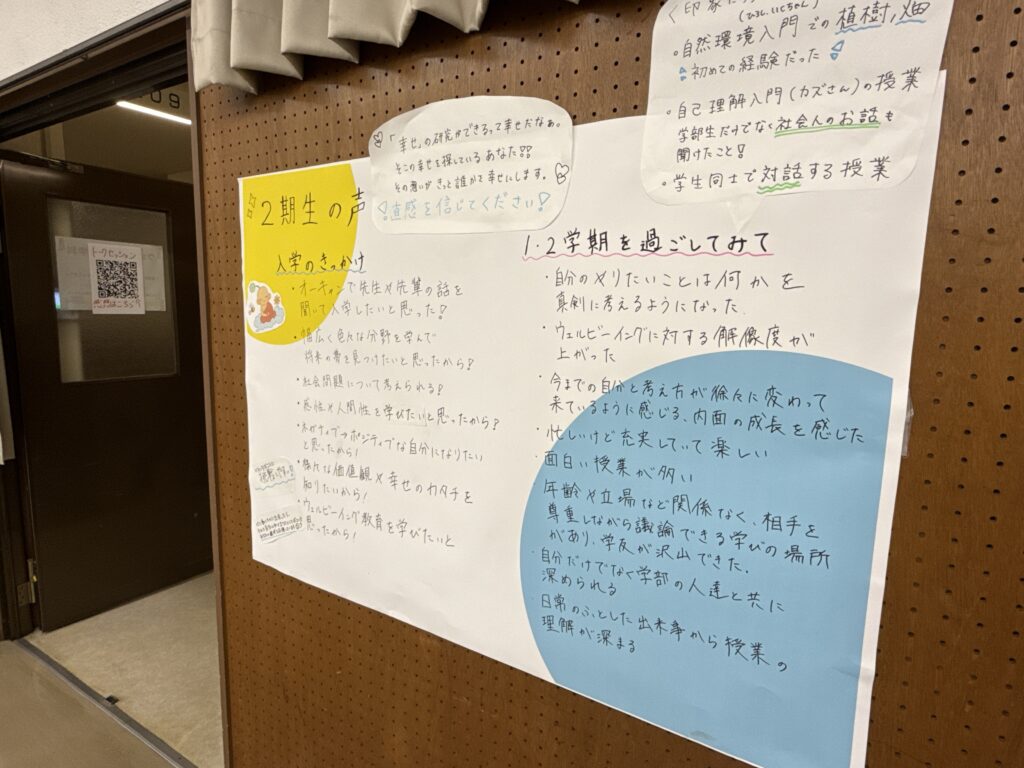 2期生の声
「幸せ」の研究ができるって幸せだなぁ。
そこの幸せを探しているあなた!!
その想いがきっと誰かを幸せにします。
直感を信じてください!
入学のきっかけ
・オーキャンで先生や先輩の話を
聞いて入学したいと思った!
・幅広く色々な分野を学んで
将来の夢を見つけたいと思ったから!
・社会問題について考えられる!
・感性や人間性を学びたいと思ったから?
・ネガティブ→ポジティブな自分になりたい
と思ったから!
・様々な価値観や幸せのカタチを
知りたいから!
・ウェルビーイング教育を学びたいと
思ったから!
・自然環境入門での植樹、畑
初めての経験だった
・自己理解入門(カズさん)の授業
学部生だけでなく社会人のお話も
聞けたこと!
・学生同士で対話する授業
1・2学期を過ごしてみて
・自分のやりたいことは何かを
真剣に考えるようになった
・ウェルビーイングに対する解像度が
上がった
・今までの自分と考え方が徐々に変わって
来ているように感じる、内面の成長を感じた
・忙しいけど充実していて楽しい
・面白い授業が多い
年齢や立場など関係なく、相手を
尊重しながら議論できる学びの場所
があり、学友が沢山できた.
・自分だけでなく学部の人達と共に
深められる
・日常のふとした出来事から授業の
理解が深まる
トークセッション